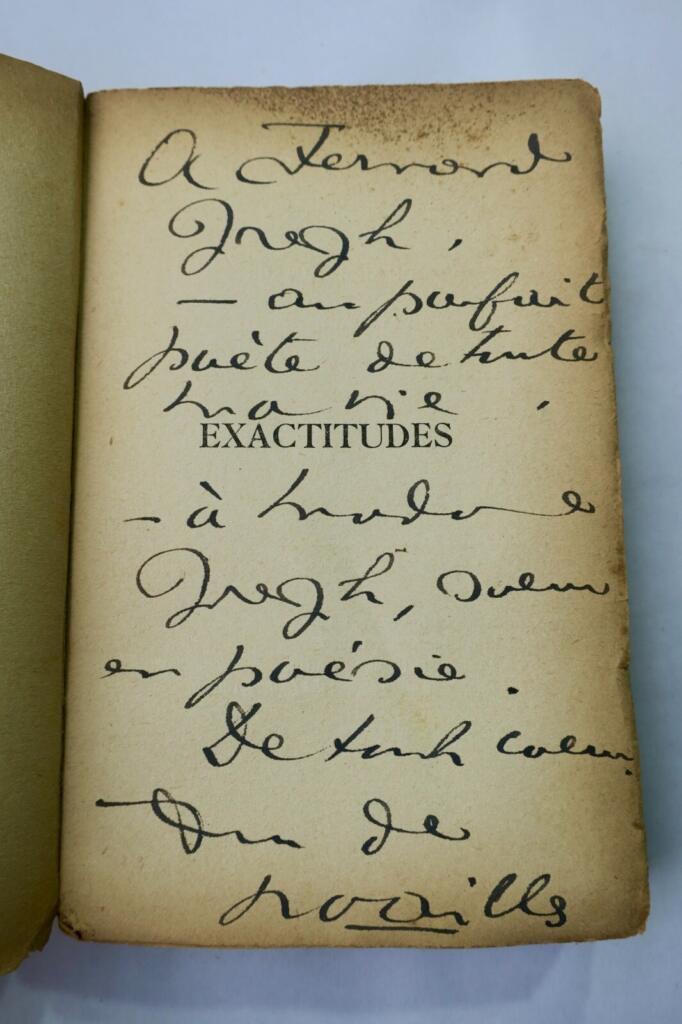 A Fernand
Gregh,
— au parfait
poète de toute
ma vie,
EXACTITUDES
— à madame
Gregh, soeur
en poésie.
De tout coeur.
Anna de
Noailles